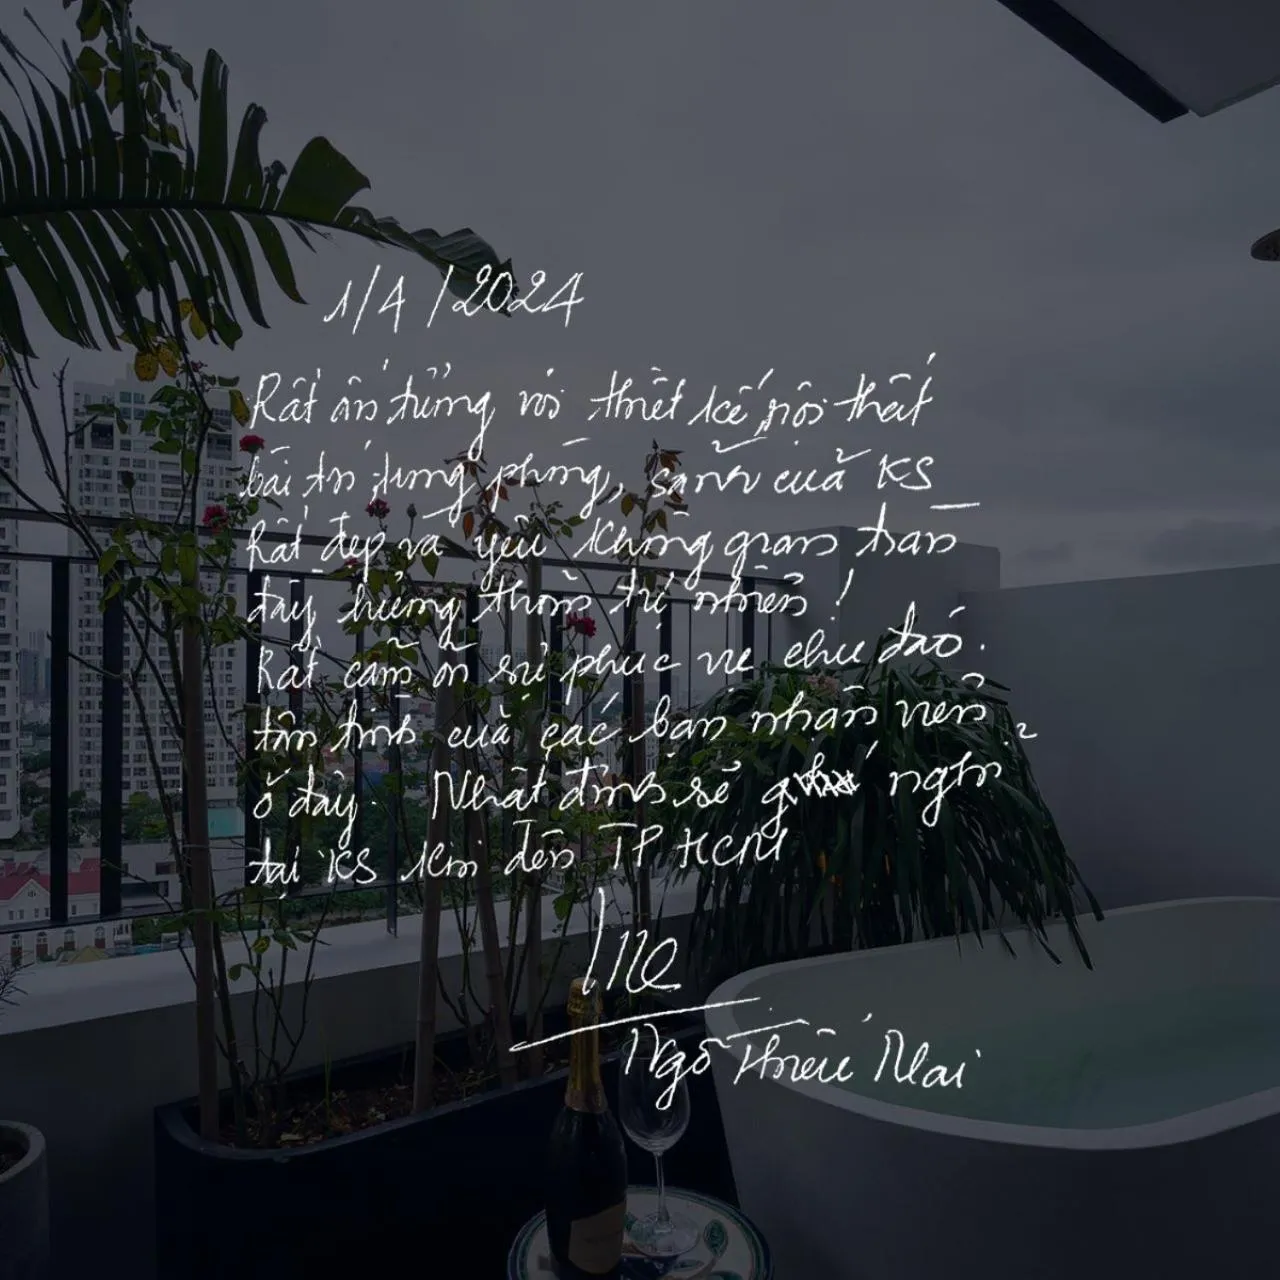 1/4/2024
Rất ấn tượng với thiết kế, nội thất
bài trí từng phòng, sảnh của KS
Rất đẹp và yêu không gian tràn
đầy hương thơm tự nhiên!
Rất cảm ơn sự phục vụ chu đáo.
tận tình của các bạn nhân viên
ở đây. Nhất định sẽ nghỉ
tại KS khi đến TP HCM
Ngô Thiều Mai